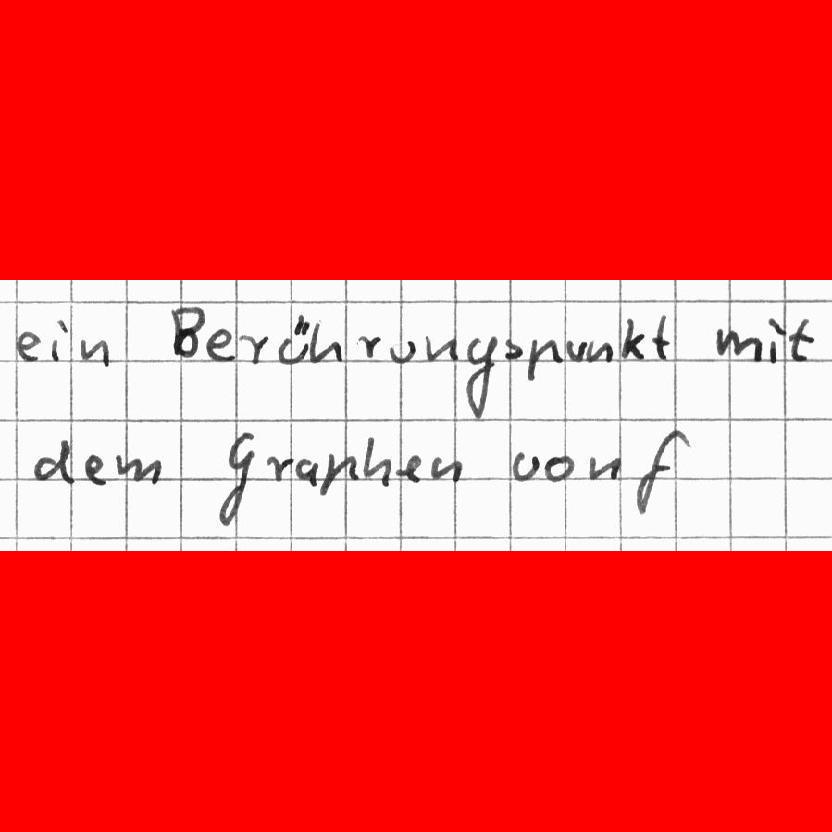 ein Berührungspunkt mit
dem Graphen von f